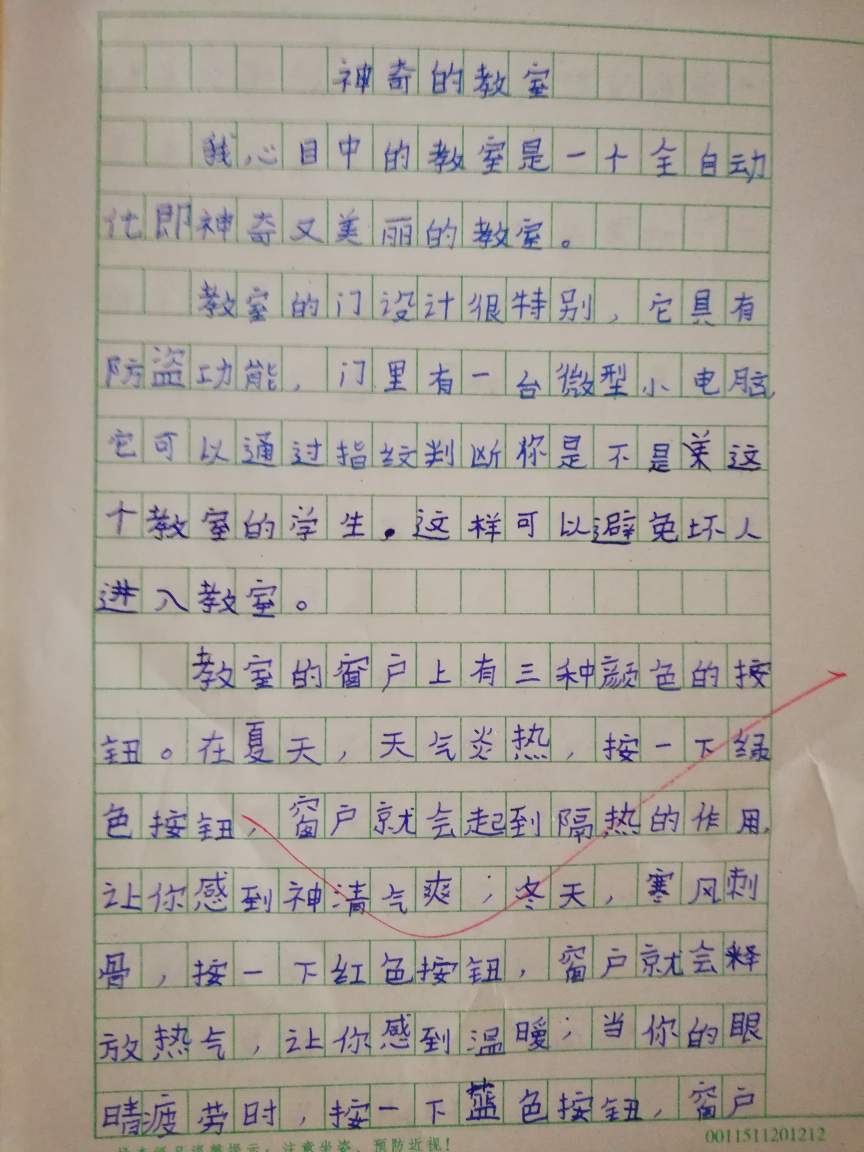 神奇的教室
我心目中的教室是一个全自动
化即神奇又美丽的教室。
教室的门设计很特别，它具有
防盗功能，门里有一台微型小电脑，
它可以通过指纹判断你是不是来这
个教室的学生。这样可以避免坏人
进入教室。
教室的窗户上有三种颜色的按
钮。在夏天，天气炎热，按一下绿
色按钮，窗户就会起到隔热的作用，
让你感到神清气爽；冬天，寒风刺
骨，按一下红色按钮，窗户就会释
放热气，让你感到温暖；当你的眼
睛疲劳时，按一下蓝色按钮，窗户
注意坐姿、预防近视！
0011511201212